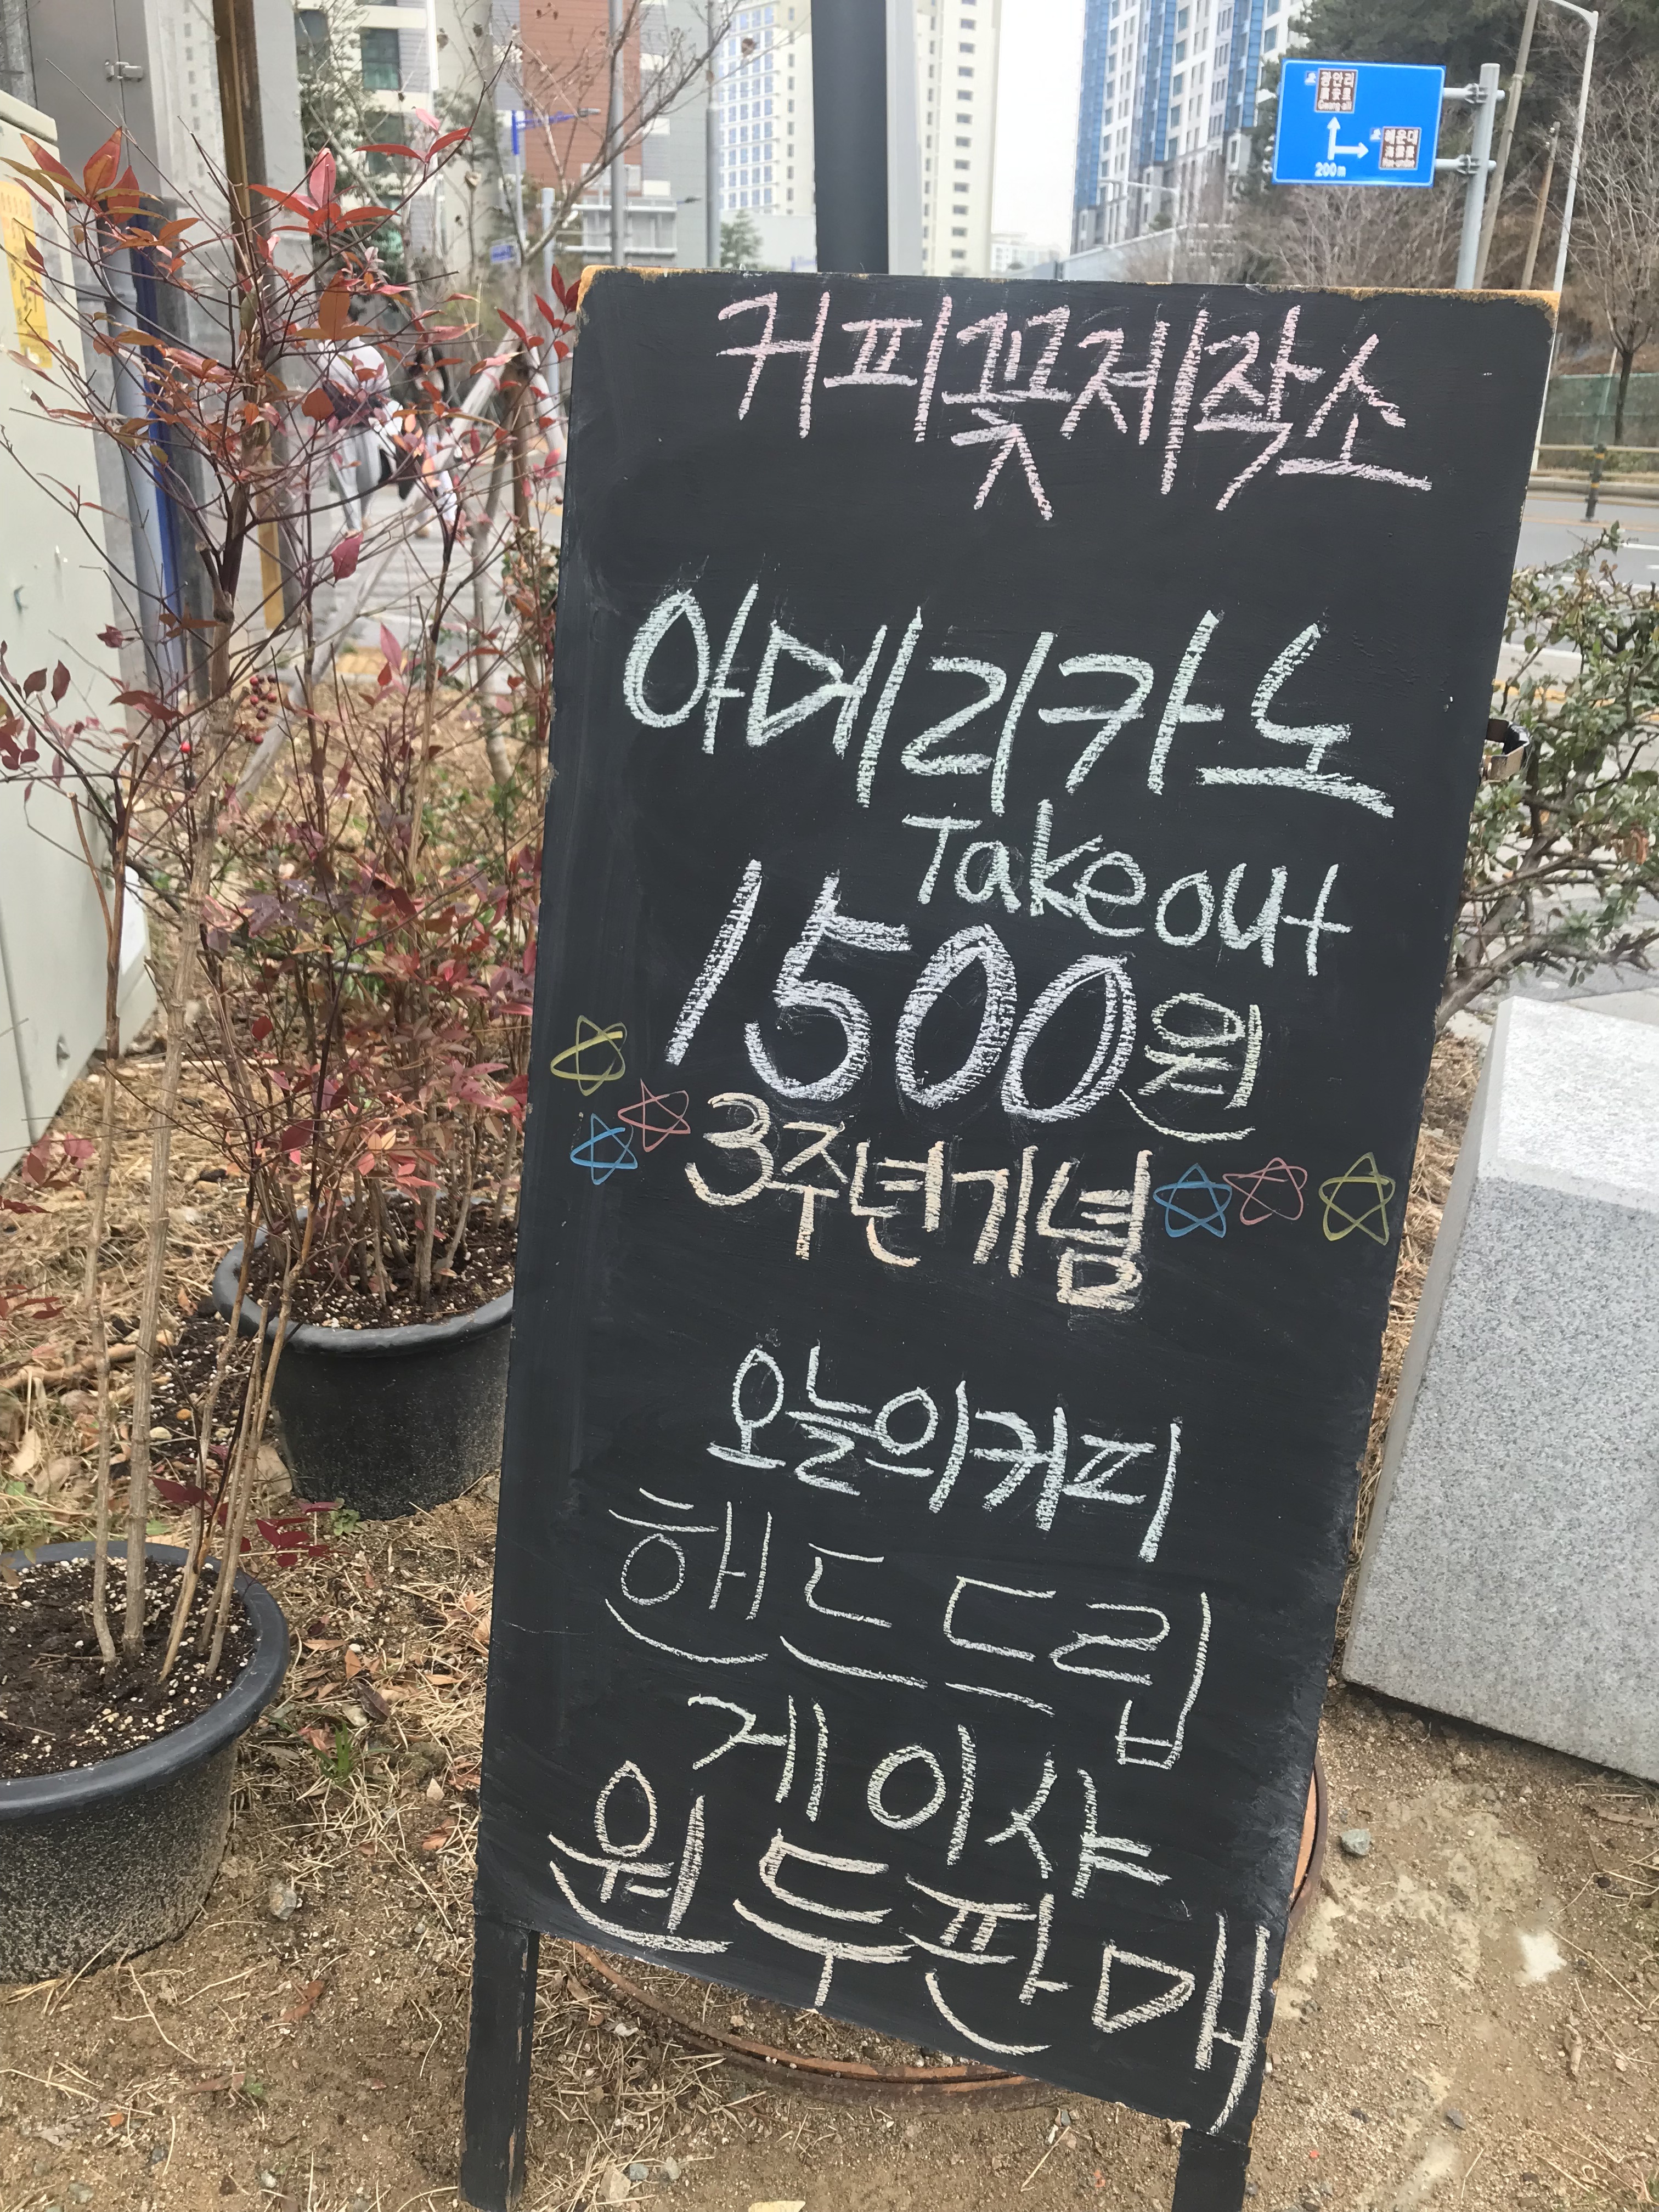 광안리
200m
해운대
커피꽃제작소
아메리카노
Takeout
1500원
3주년기념
오늘의커피
핸드드립
게이샤
원두판매